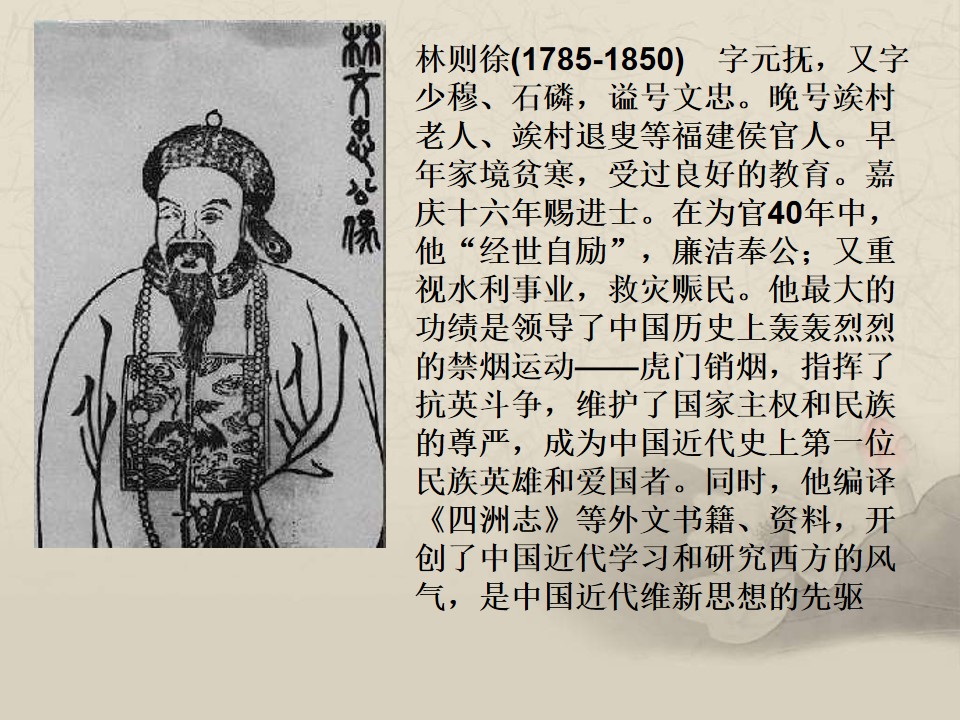 林文忠公像
林则徐(1785-1850)　字元抚，又字
少穆、石磷，谥号文忠。晚号竢村
老人、竢村退叟等福建侯官人。早
年家境贫寒，受过良好的教育。嘉
庆十六年赐进士。在为官40年中，
他“经世自励”，廉洁奉公；又重
视水利事业，救灾赈民。他最大的
功绩是领导了中国历史上轰轰烈烈
的禁烟运动——虎门销烟，指挥了
抗英斗争，维护了国家主权和民族
的尊严，成为中国近代史上第一位
民族英雄和爱国者。同时，他编译
《四洲志》等外文书籍、资料，开
创了中国近代学习和研究西方的风
气，是中国近代维新思想的先驱